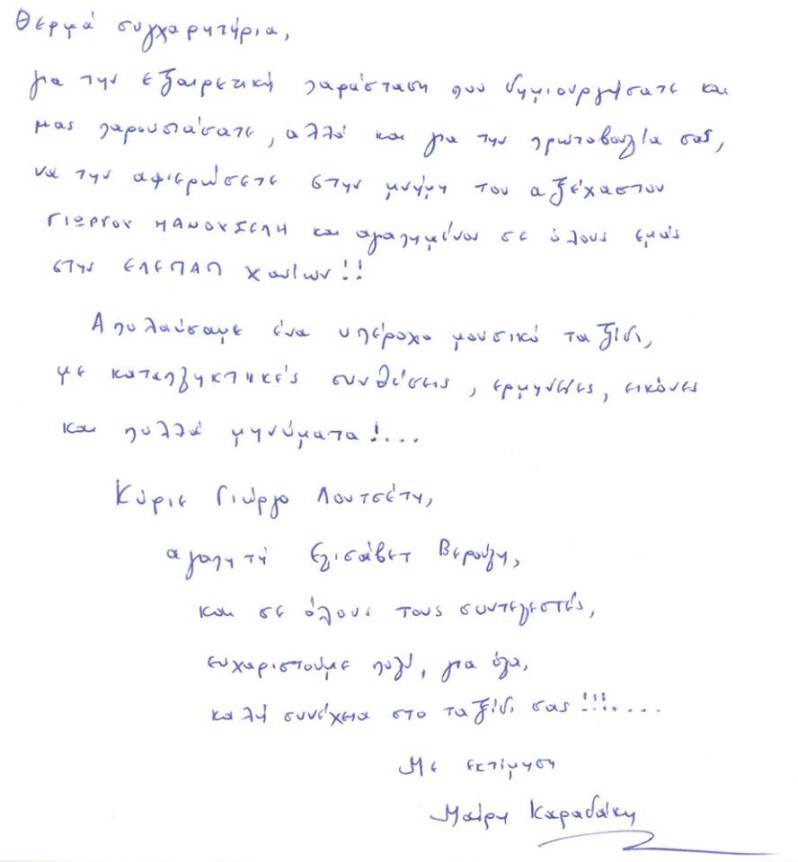 Θερμά συγχαρητήρια,
για την εξαιρετική παράσταση που δημιουργήσατε και
μας παρουσιάσατε, αλλά και για την πρωτοβουλία σας,
να την αφιερώσετε στην μνήμη του αξέχαστου
ΓΙΩΡΓΟΥ ΜΑΝΟΥΣΕΛΗ και αγαπημένου σε όλους εμάς
στην ΕΛΕΠΑΠ Χανίων!!
Απολαύσαμε ένα υπέροχο μουσικό ταξίδι,
με καταπληκτικές συνθέσεις, ερμηνείες, εικόνες
και πολλά μηνύματα!...
Κύριε Γιώργο Λουτσέτη,
αγαπητή Ελισάβετ Βερούλη,
και σε όλους τους συντελεστές,
ευχαριστούμε πολύ, για όλα,
καλή συνέχεια στο ταξίδι σας!!!....
Με εκτίμηση
Μαίρη Καραδάκη